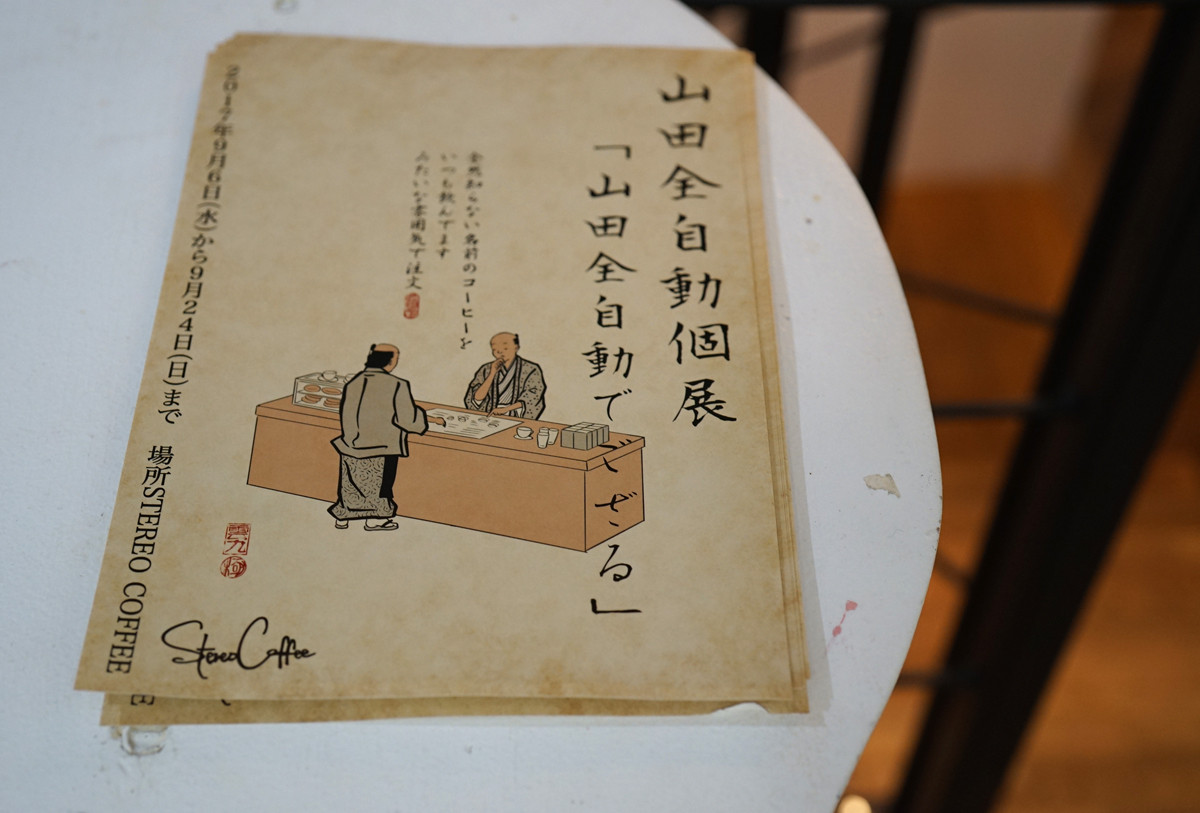 山田全自動個展
「山田全自動でござる」
全然知らない名前のコーヒーを
いつも飲んでます
みたいな雰囲気で注文
2017年9月6日(水)から9月24日(日)まで 場所STEREO COFFEE
Stereo Coffee